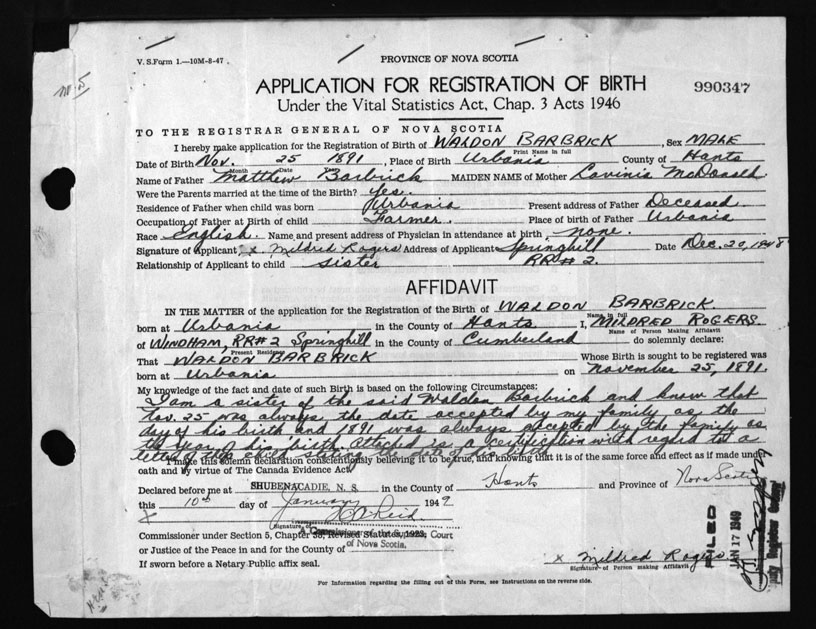 V. S. Form 1.—10M-8-47
PROVINCE OF NOVA SCOTIA
APPLICATION FOR REGISTRATION OF BIRTH
990347
Under the Vital Statistics Act, Chap. 3 Acts 1946
TO THE REGISTRAR GENERAL OF NOVA SCOTIA
I hereby make application for the Registration of Birth of WALDON BARBRICK, Sex MALE
Print Name in full
Date of Birth Nov. 25 1891, Place of Birth Urbania County of Hants
Month Date
Name of Father Matthew Barbrick MAIDEN NAME of Mother Lavinia McDonald
Were the Parents married at the time of the Birth? yes.
Residence of Father when child was born Urbania Present address of Father Deceased
Occupation of Father at Birth of child Farmer. Place of birth of Father Urbania
Race English. Name and present address of Physician in attendance at birth none.
Signature of Applicant x Mildred Rogers Address of Applicant Springhill Date Dec. 20, 1948
Relationship of Applicant to child sister RR#2.
AFFIDAVIT
IN THE MATTER of the application for the Registration of the Birth of WALDON BARBRICK
Name in full
born at Urbania in the County of Hants I, MILDRED ROGERS.
Name of Person Making Affidavit
of WINDHAM, RR#2 Springhill in the County of Cumberland do solemnly declare:
Present Residence
That WALDON BARBRICK Whose Birth is sought to be registered was
born at Urbania on November 25, 1891.
My knowledge of the fact and date of such Birth is based on the following Circumstances:
I am a sister of the said Waldon Barbrick and know that
Nov. 25 was always the date accepted by my family as the
day of his birth and 1891 was always accepted by the family as
the year of his birth. Attached is a certification with regard to a
letter of this child stating the date of his birth
I make this solemn declaration conscientiously believing it to be true, and knowing that it is of the same force and effect as if made under
oath and by virtue of The Canada Evidence Act.
Declared before me at SHUBENACADIE, N. S. in the County of Hants and Province of Nova Scotia
this 10th day of January 1949
x
Signature of
A Commissioner of the Supreme Court
Commissioner under Section 5, Chapter 38, Revised Statutes, 1923,
of Nova Scotia.
or Justice of the Peace in and for the County of
If sworn before a Notary Public affix seal.
x Mildred Rogers
Signature of Person making Affidavit
FILED
JAN 17 1949
For Information regarding the filling out of this Form, see Instructions on the reverse side.